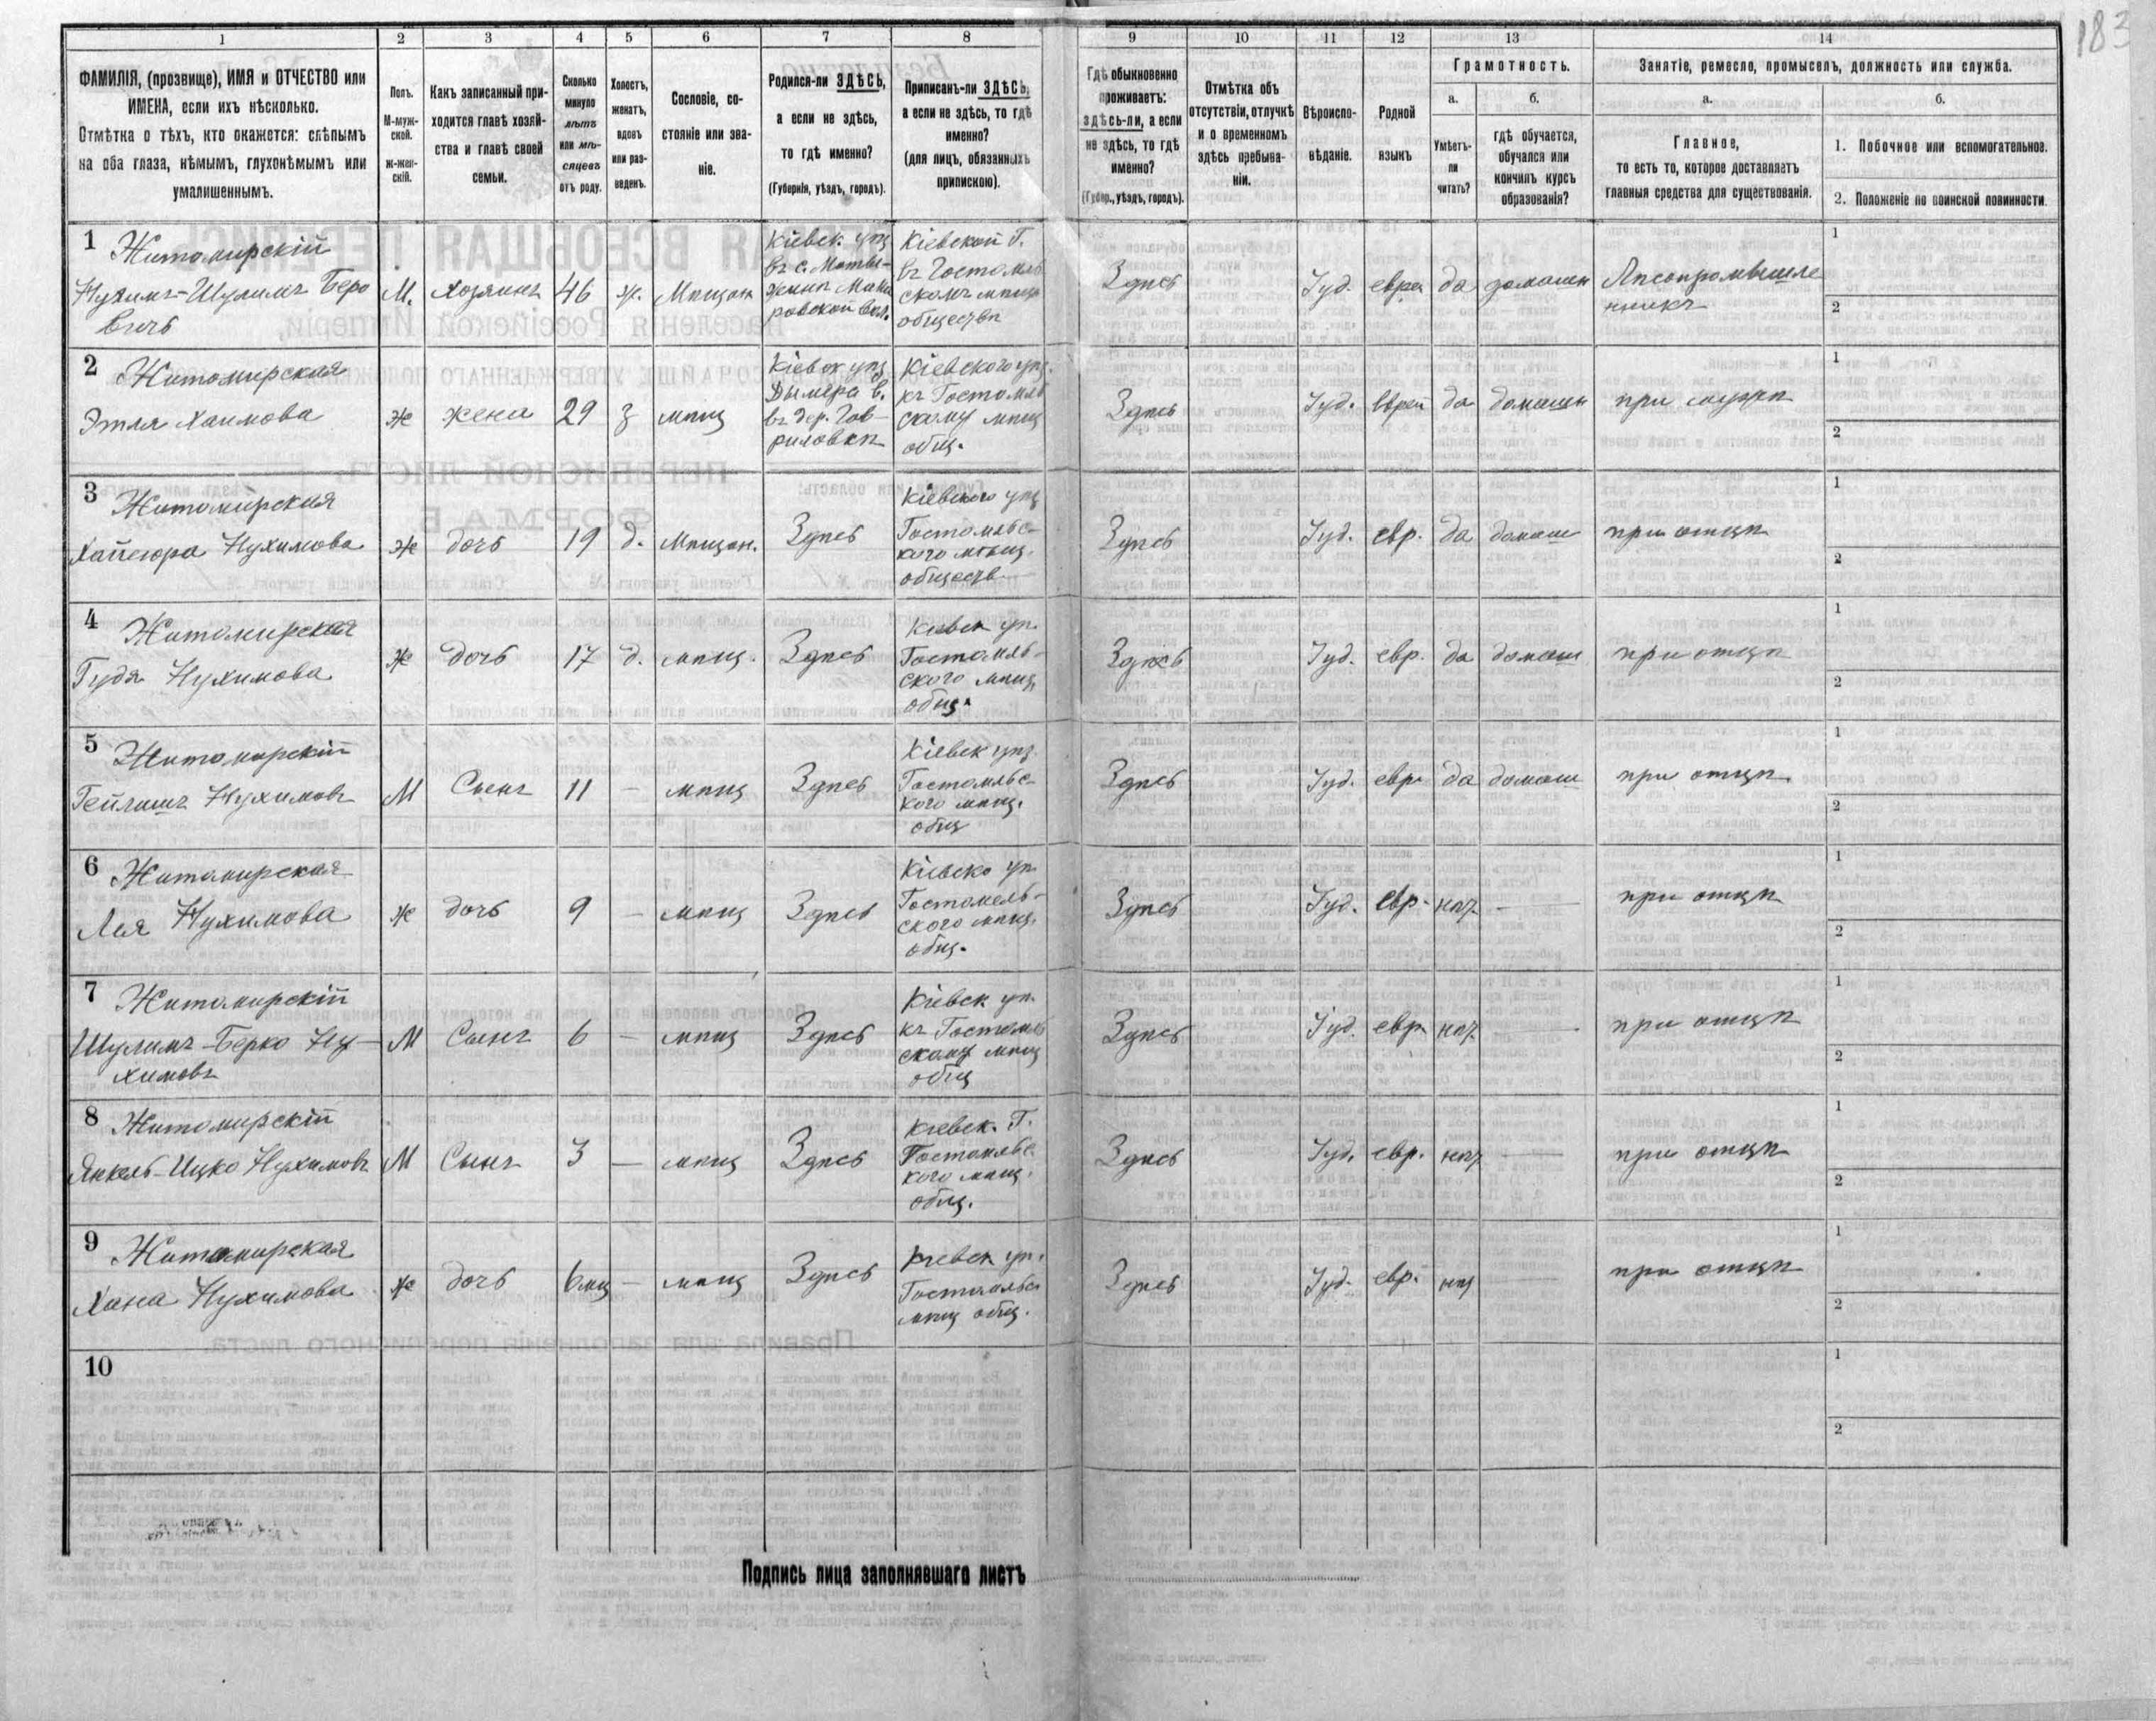 183
1
2
3
4
5
6
7
8
9
10
11
12
13
14
ФАМИЛІЯ, (прозвище), ИМЯ и ОТЧЕСТВО или
ИМЕНА, если ихъ нѣсколько.
Отмѣтка о тѣхъ, кто окажется: слѣпымъ
на оба глаза, нѣмымъ, глухонѣмымъ или
умалишеннымъ.
Полъ.
М-муж-
ской.
ж-жен-
скій.
Какъ записанный при-
ходится главѣ хозяй-
ства и главѣ своей
семьи.
Сколько
минуло
лѣтъ
или мѣ-
сяцевъ
отъ роду.
Холостъ,
женатъ,
вдовъ
или раз-
веденъ.
Сословіе, со-
стояніе или зва-
ніе.
Родился-ли ЗДѢСЬ,
а если не здѣсь,
то гдѣ именно?
(Губернія, уѣздъ, городъ).
Приписанъ-ли ЗДѢСЬ,
а если не здѣсь, то гдѣ
именно?
(для лицъ, обязанныхъ
припискою).
Гдѣ обыкновенно
проживаетъ:
здѣсь-ли, а если
не здѣсь, то гдѣ
именно?
(Губер., уѣздъ, городъ).
Отмѣтка объ
отсутствіи, отлучкѣ
и о временномъ
здѣсь пребыва-
ніи.
Вѣроиспо-
вѣданіе.
Родной
языкъ
Грамотность.
а.
Умѣетъ-
ли
читать?
б.
гдѣ обучается,
обучался или
кончилъ курсъ
образованія?
Занятіе, ремесло, промыселъ, должность или служба.
а.
Главное,
то есть то, которое доставляетъ
главныя средства для существованія.
б.
1. Побочное или вспомогательное.
2. Положеніе по воинской повинности.
1 Житомирскій
Нухимъ-Шулимъ Беро
вичъ
М. хозяинъ 46 ж. Мѣщан
Кіевск. уѣз
въ с. Моты-
жинѣ Мака
ровской вол.
Кіевской Г.
въ Гостомль
скомъ мѣщ
обществѣ
Здѣсь Іуд. евре да домашн Лѣсопромышле
нникъ
1
2
2 Житомирская
Этля Хаимова
ж жена 29 з мѣщ
Кіевск уѣз
Дымера в.
въ дер. Гав-
риловкѣ
Кіевского уѣз.
къ Гостомль
скому мѣщ
общ.
Здѣсь Іуд. Еврей да домашн при мужѣ
1
2
3 Житомирская
Нухимова
ж дочь 19 д. Мѣщан. Здѣсь
Кіевского уѣз
Гостомльс-
кого мѣщ.
обществ
Здѣсь Іуд. евр. да домаш при отцѣ
1
2
4 Житомирская
Гудя Нухимова
ж дочь 17 д. мѣщ. Здѣсь
Кіевск уѣ.
Гостомль-
ского мѣщ.
общ.
Здѣсь Іуд. евр. да домаш при отцѣ
1
2
5 Житомирскій
Нухимовъ
М Сынъ 11 — мѣщ Здѣсь
Кіевск уѣз.
Гостомльс-
кого мѣщ.
общ
Здѣсь Іуд. евр. да домаш при отцѣ
1
2
6 Житомирская
Лея Нухимова
ж дочь 9 — мѣщ Здѣсь
Кіевско уѣ
Гостомель-
ского мѣщ.
общ.
Здѣсь Іуд. евр. нѣт. — при отцѣ
1
2
7 Житомирскій
Шулимъ-Берко Ну-
химовъ
М Сынъ 6 — мѣщ Здѣсь
Кіевск уѣ.
къ Гостомль
скому мѣщ
общ
Здѣсь Іуд. евр. нѣт. — при отцѣ
1
2
8 Житомирскій
Янкель-Ицко Нухимовъ
М Сынъ 3 — мѣщ Здѣсь
Кіевск. Г.
Гостомльс
кого мѣщ.
общ.
Здѣсь Іуд. евр. нѣт — при отцѣ
1
2
9 Житомирская
Хана Нухимова
ж дочь 6 мц — мѣщ Здѣсь
Кіевск уѣ.
Гостомльс
мѣщ общ.
Здѣсь Іуд. евр. нѣт при отцѣ
1
2
10
1
2
Подпись лица заполнявшаго листъ